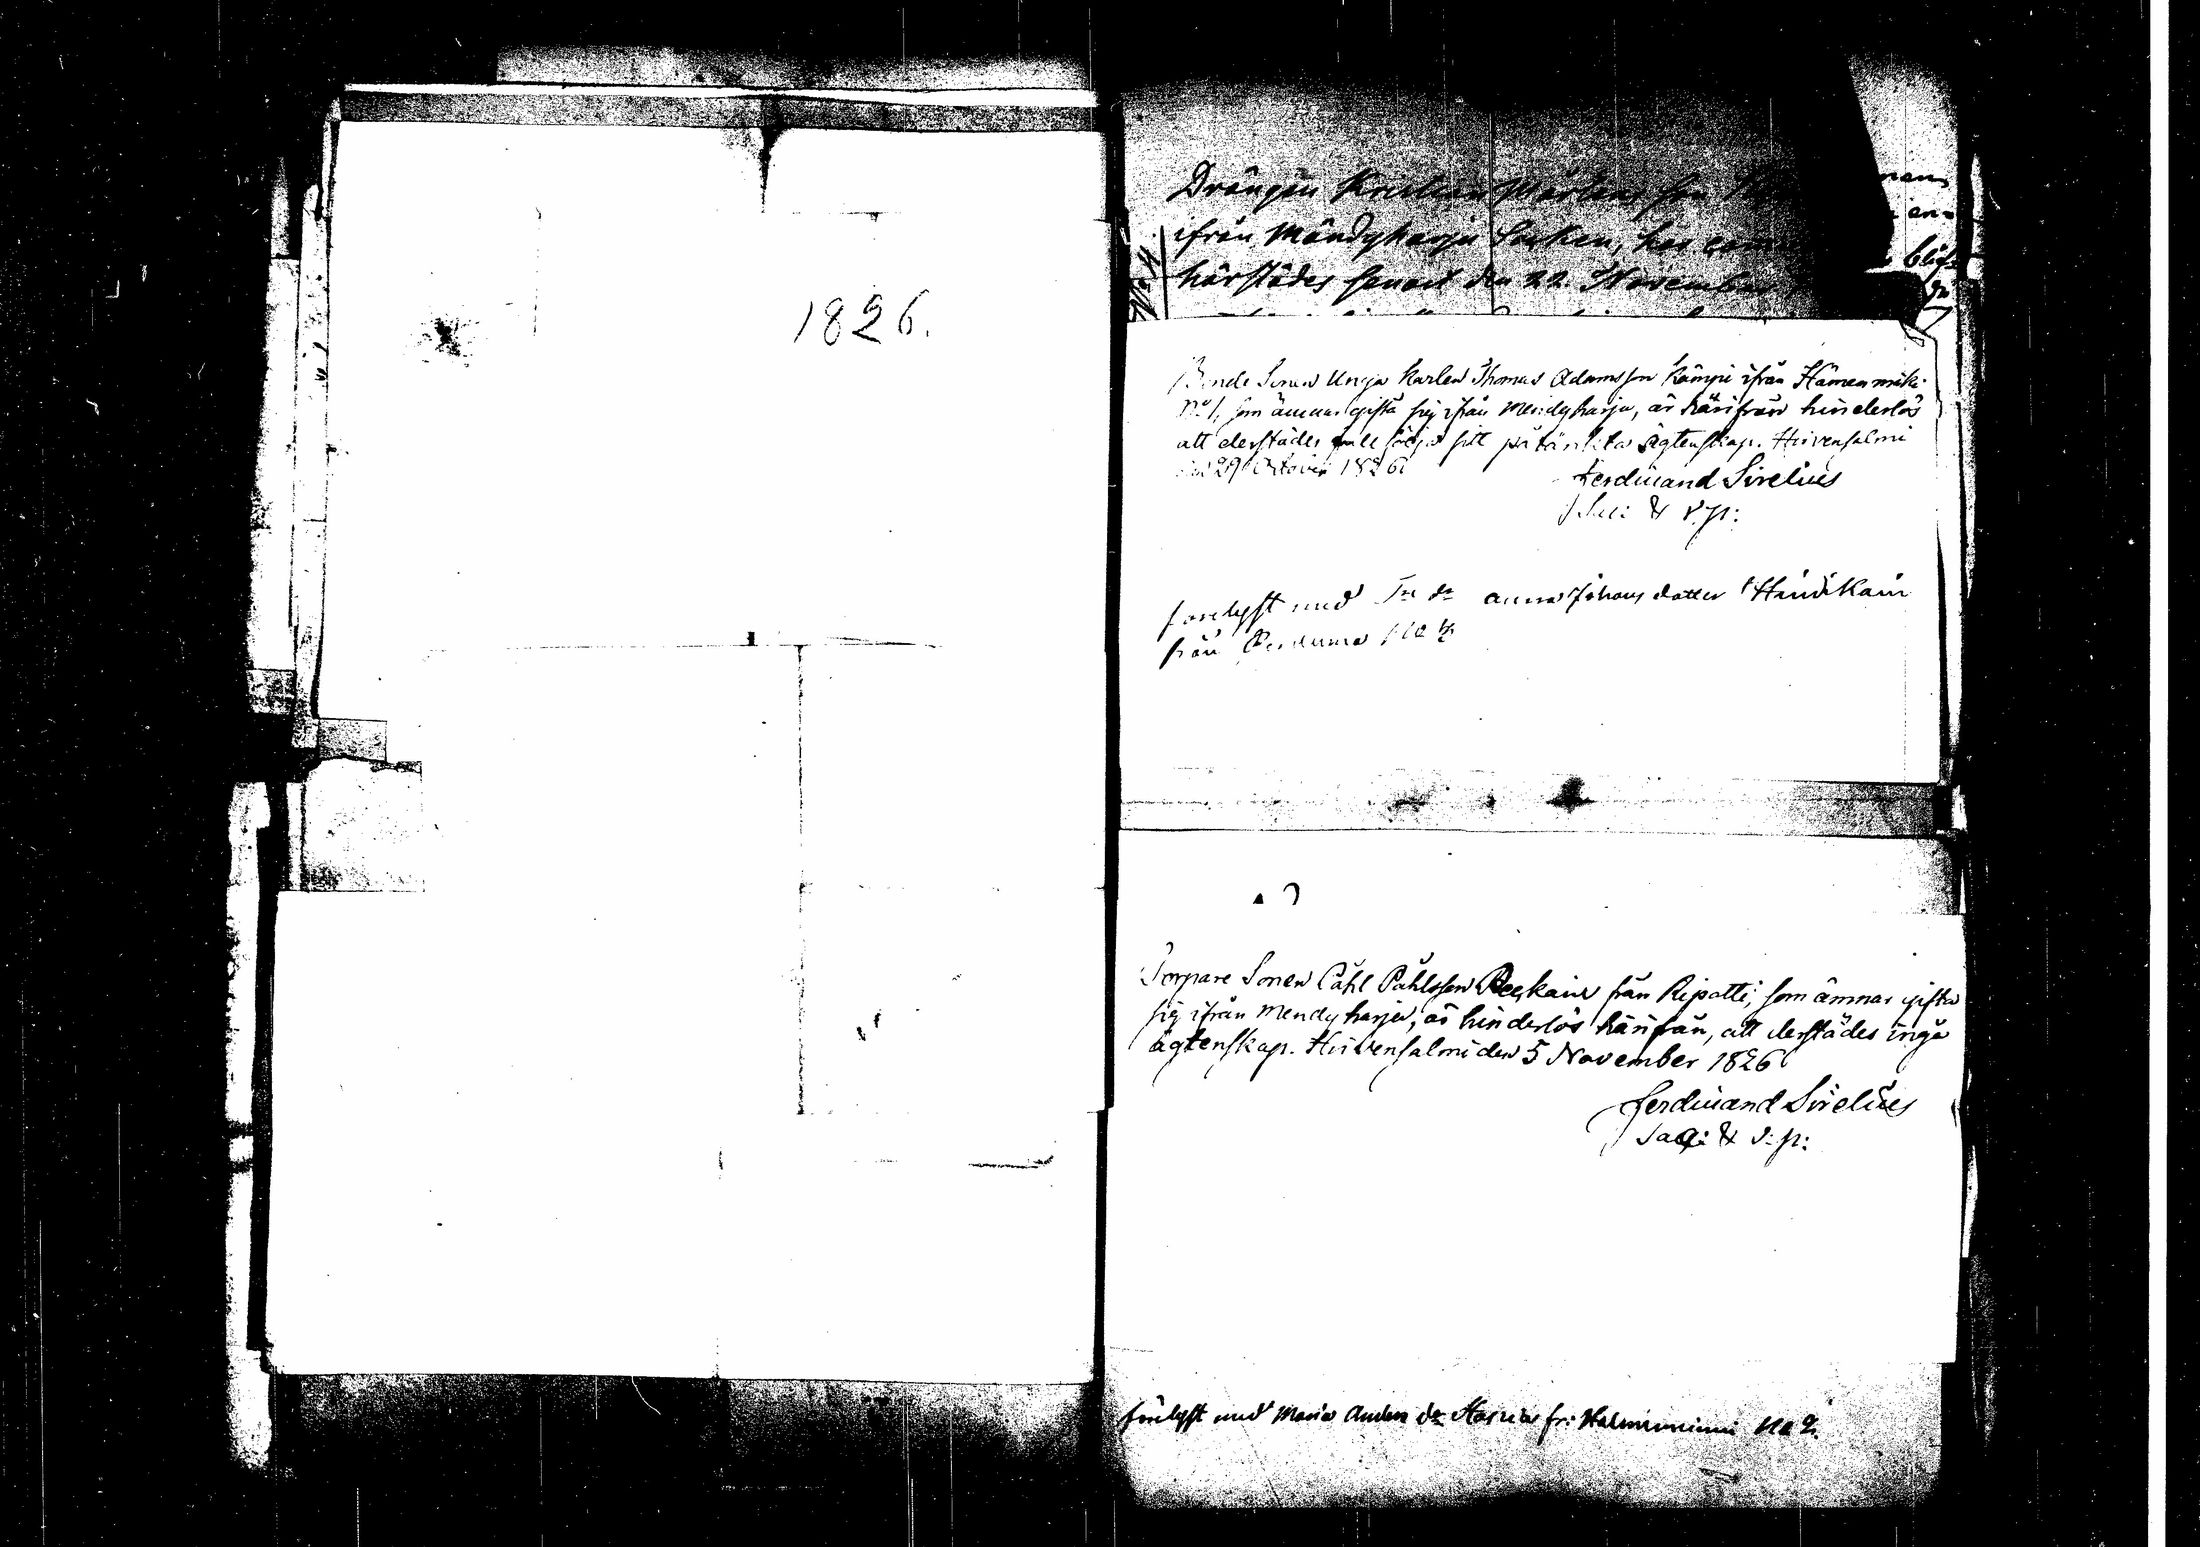 1826.
Drängen Kristian Mårtens son
ifrån Mändyharju Socken, har
härstädes senast den 22. November
Bonde Sonen Unga Karlen Thomas Adamsson Kämpi ifrån Hämeenmäki
No 1, som ämnar gifta sig ifrån Mendyharju, är härifrån hinderlös
att derstädes fullfölja sitt påtänkta ägtenskap. Hirvensalmi
den 29 October 1826
Ferdinand Sirelius
Sac: & v.p:
förelyst med anna Johans dotter Häidikain
från No
Torpare Sonen Påhl Påhlsson Reekain från Ripatti, som ämnar gifta
sig ifrån Mendyharju, är hinderlös härifrån, att derstädes ingå
ägtenskap. Hirvensalmi den 5 November 1826
Ferdinand Sirelius
Sac: & v:p:
förelyst med Maria Anders dr fr: No 2.